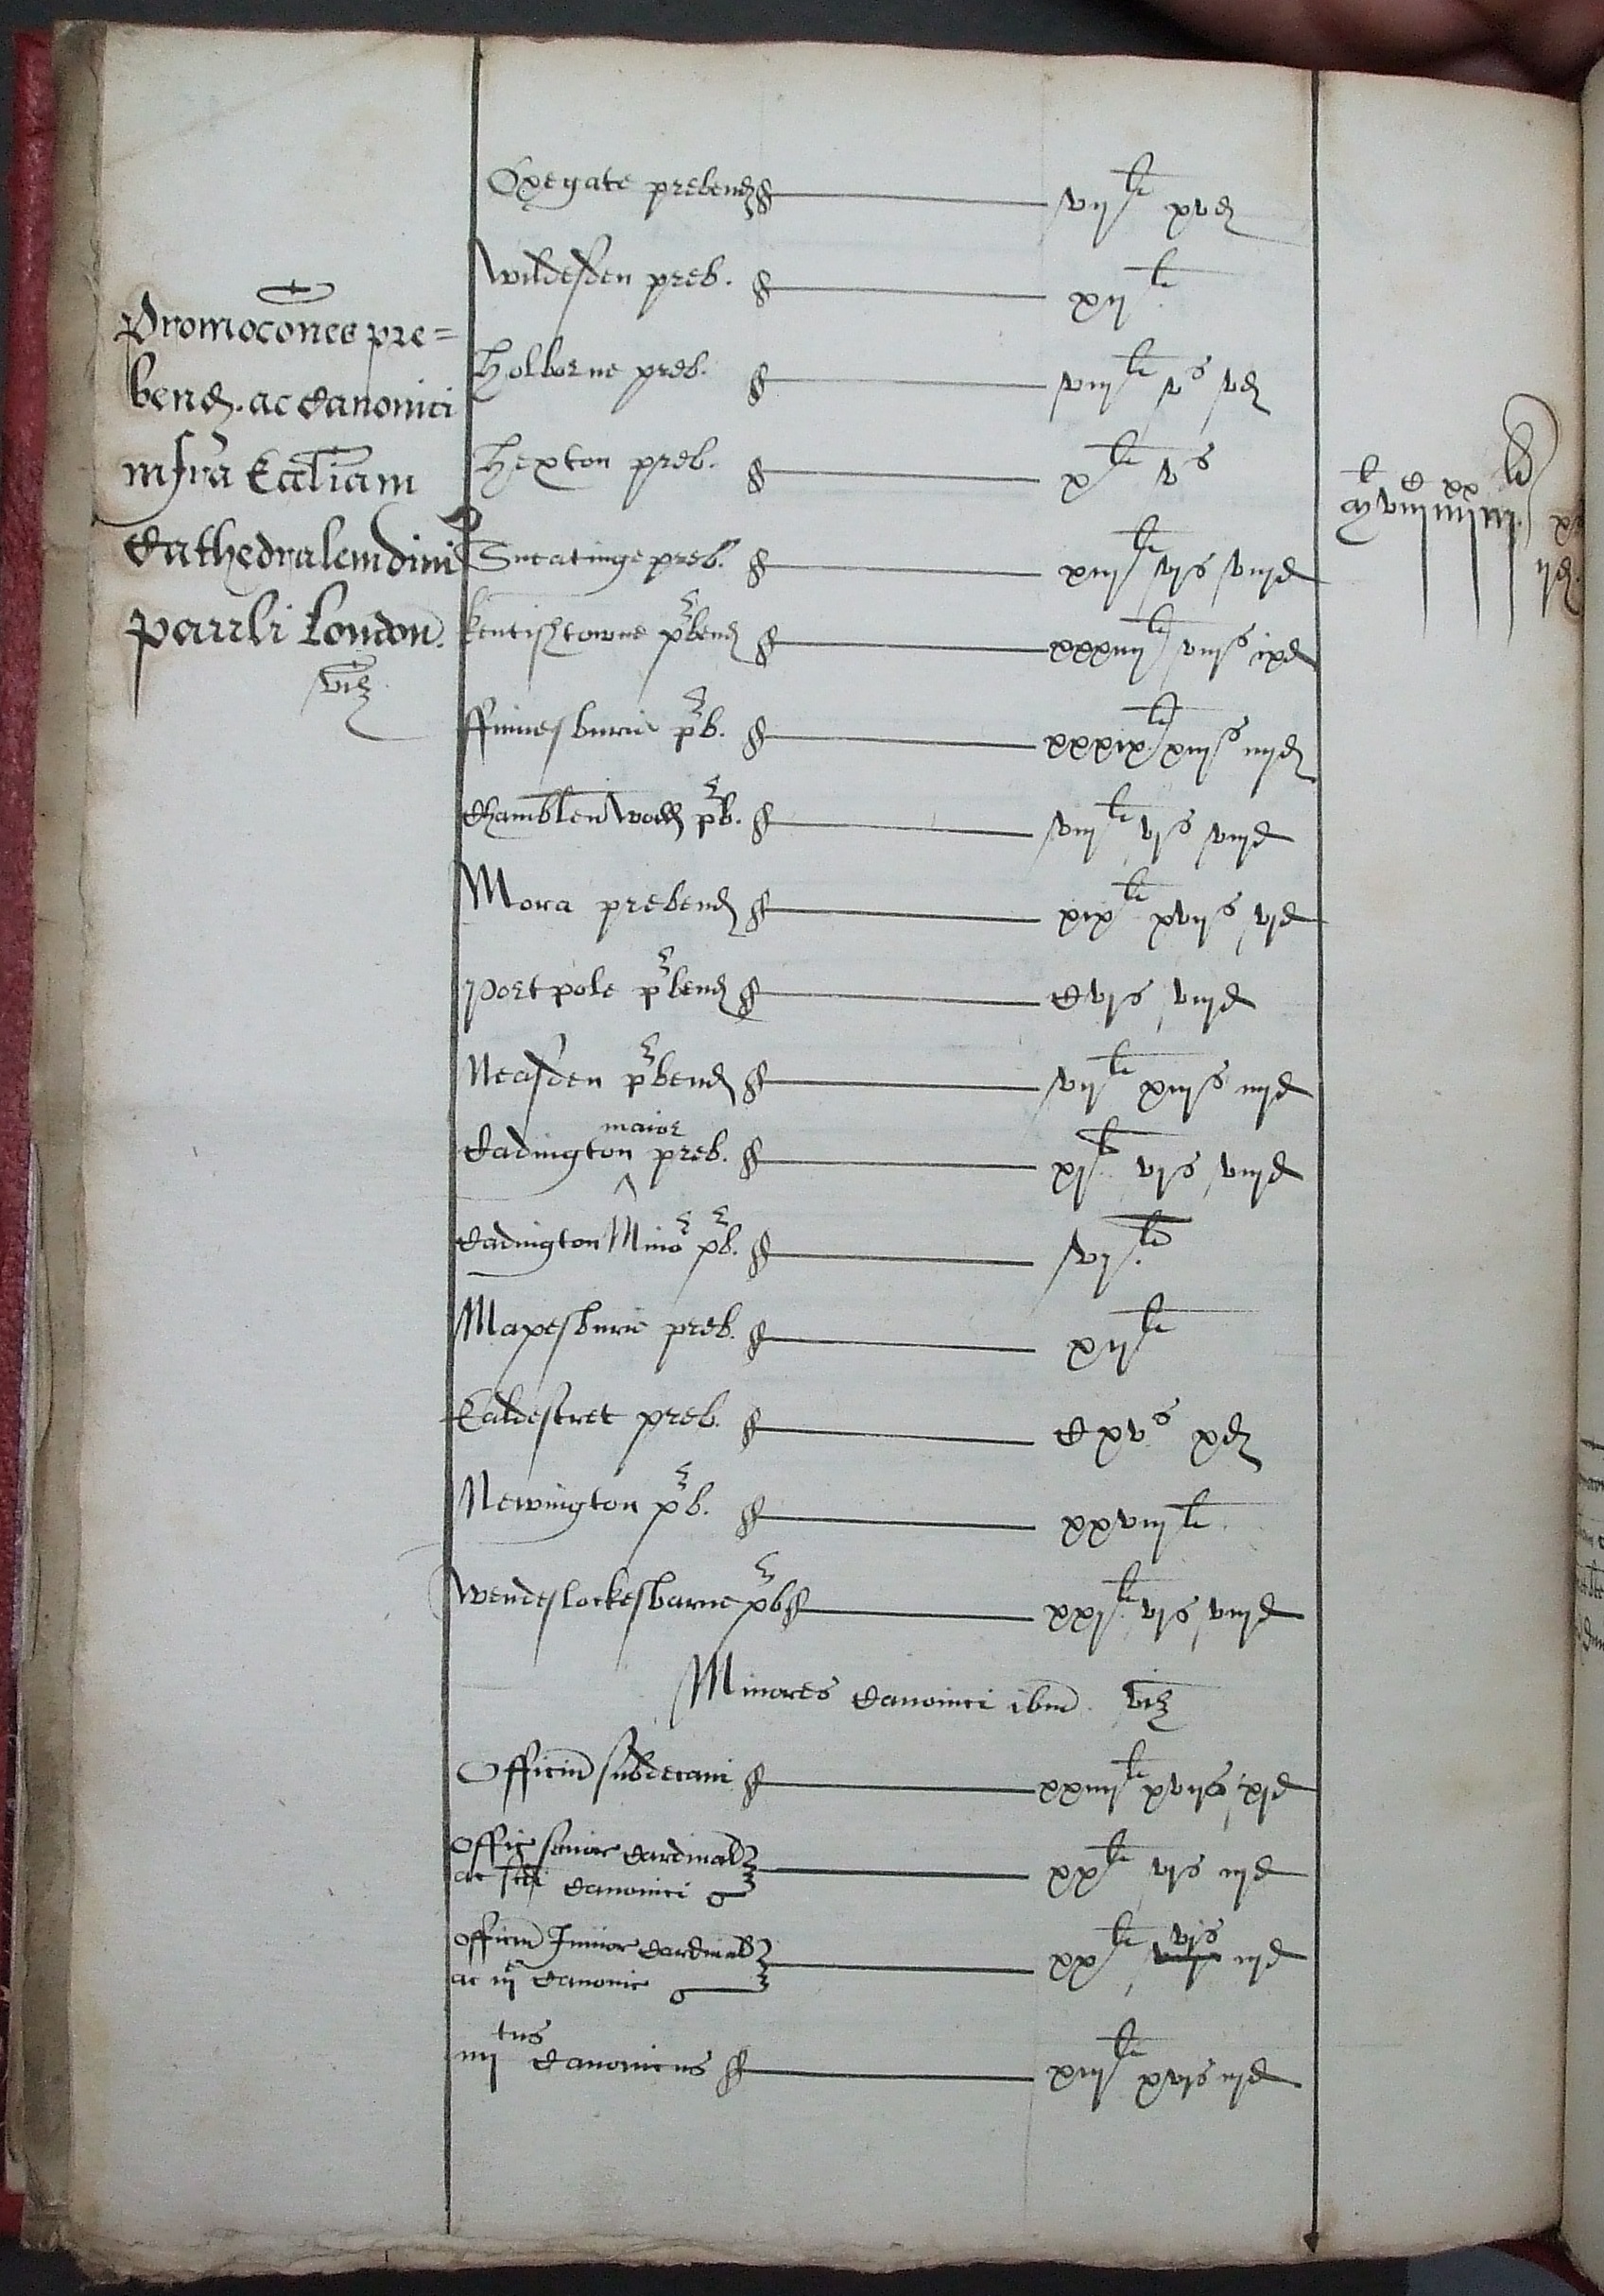 Promocones pre=
bend. ac Canonici
infra Ecaliam
Cathedralem divi
Pauli London.
viz
Oxegate prebend vijli xvd
Wildesden preb. xijli
Holborne preb. viijli vs vd
Hexton preb. xli vs
Sneatinge preb. xiijli vjs viijd
kentishtowne prbend xxxiiijli viijs ixd
ffinnesburie prb. xxxixli xiijs iiijd
Chamblenwod prb. viijli vjs viijd
Mora prebend xixli xvijs vjd
Portpole prbend Cvjs viijd
Neasden prbend vijli xiijs iiijd
maior
Cadington preb. xjli vjs viijd
Cadington Minor prb. vjli
Mapesburie preb. xijli
Ealdestret preb. Cxvs xd
Newington prb. xxviijli
Wendeslockesbarne prb xxjli vjs viijd
Minores Canonici ibm. viz
Officiu subdecani xxiiijli xvijs xjd
Offic senior Cardinal
ac scdi Canonici xxli vjs iijd
Officiu Junior Cardinal
ac iij Canonic xxli vjs iijd
iiijtus Canonicus xiijli xvjs iijd